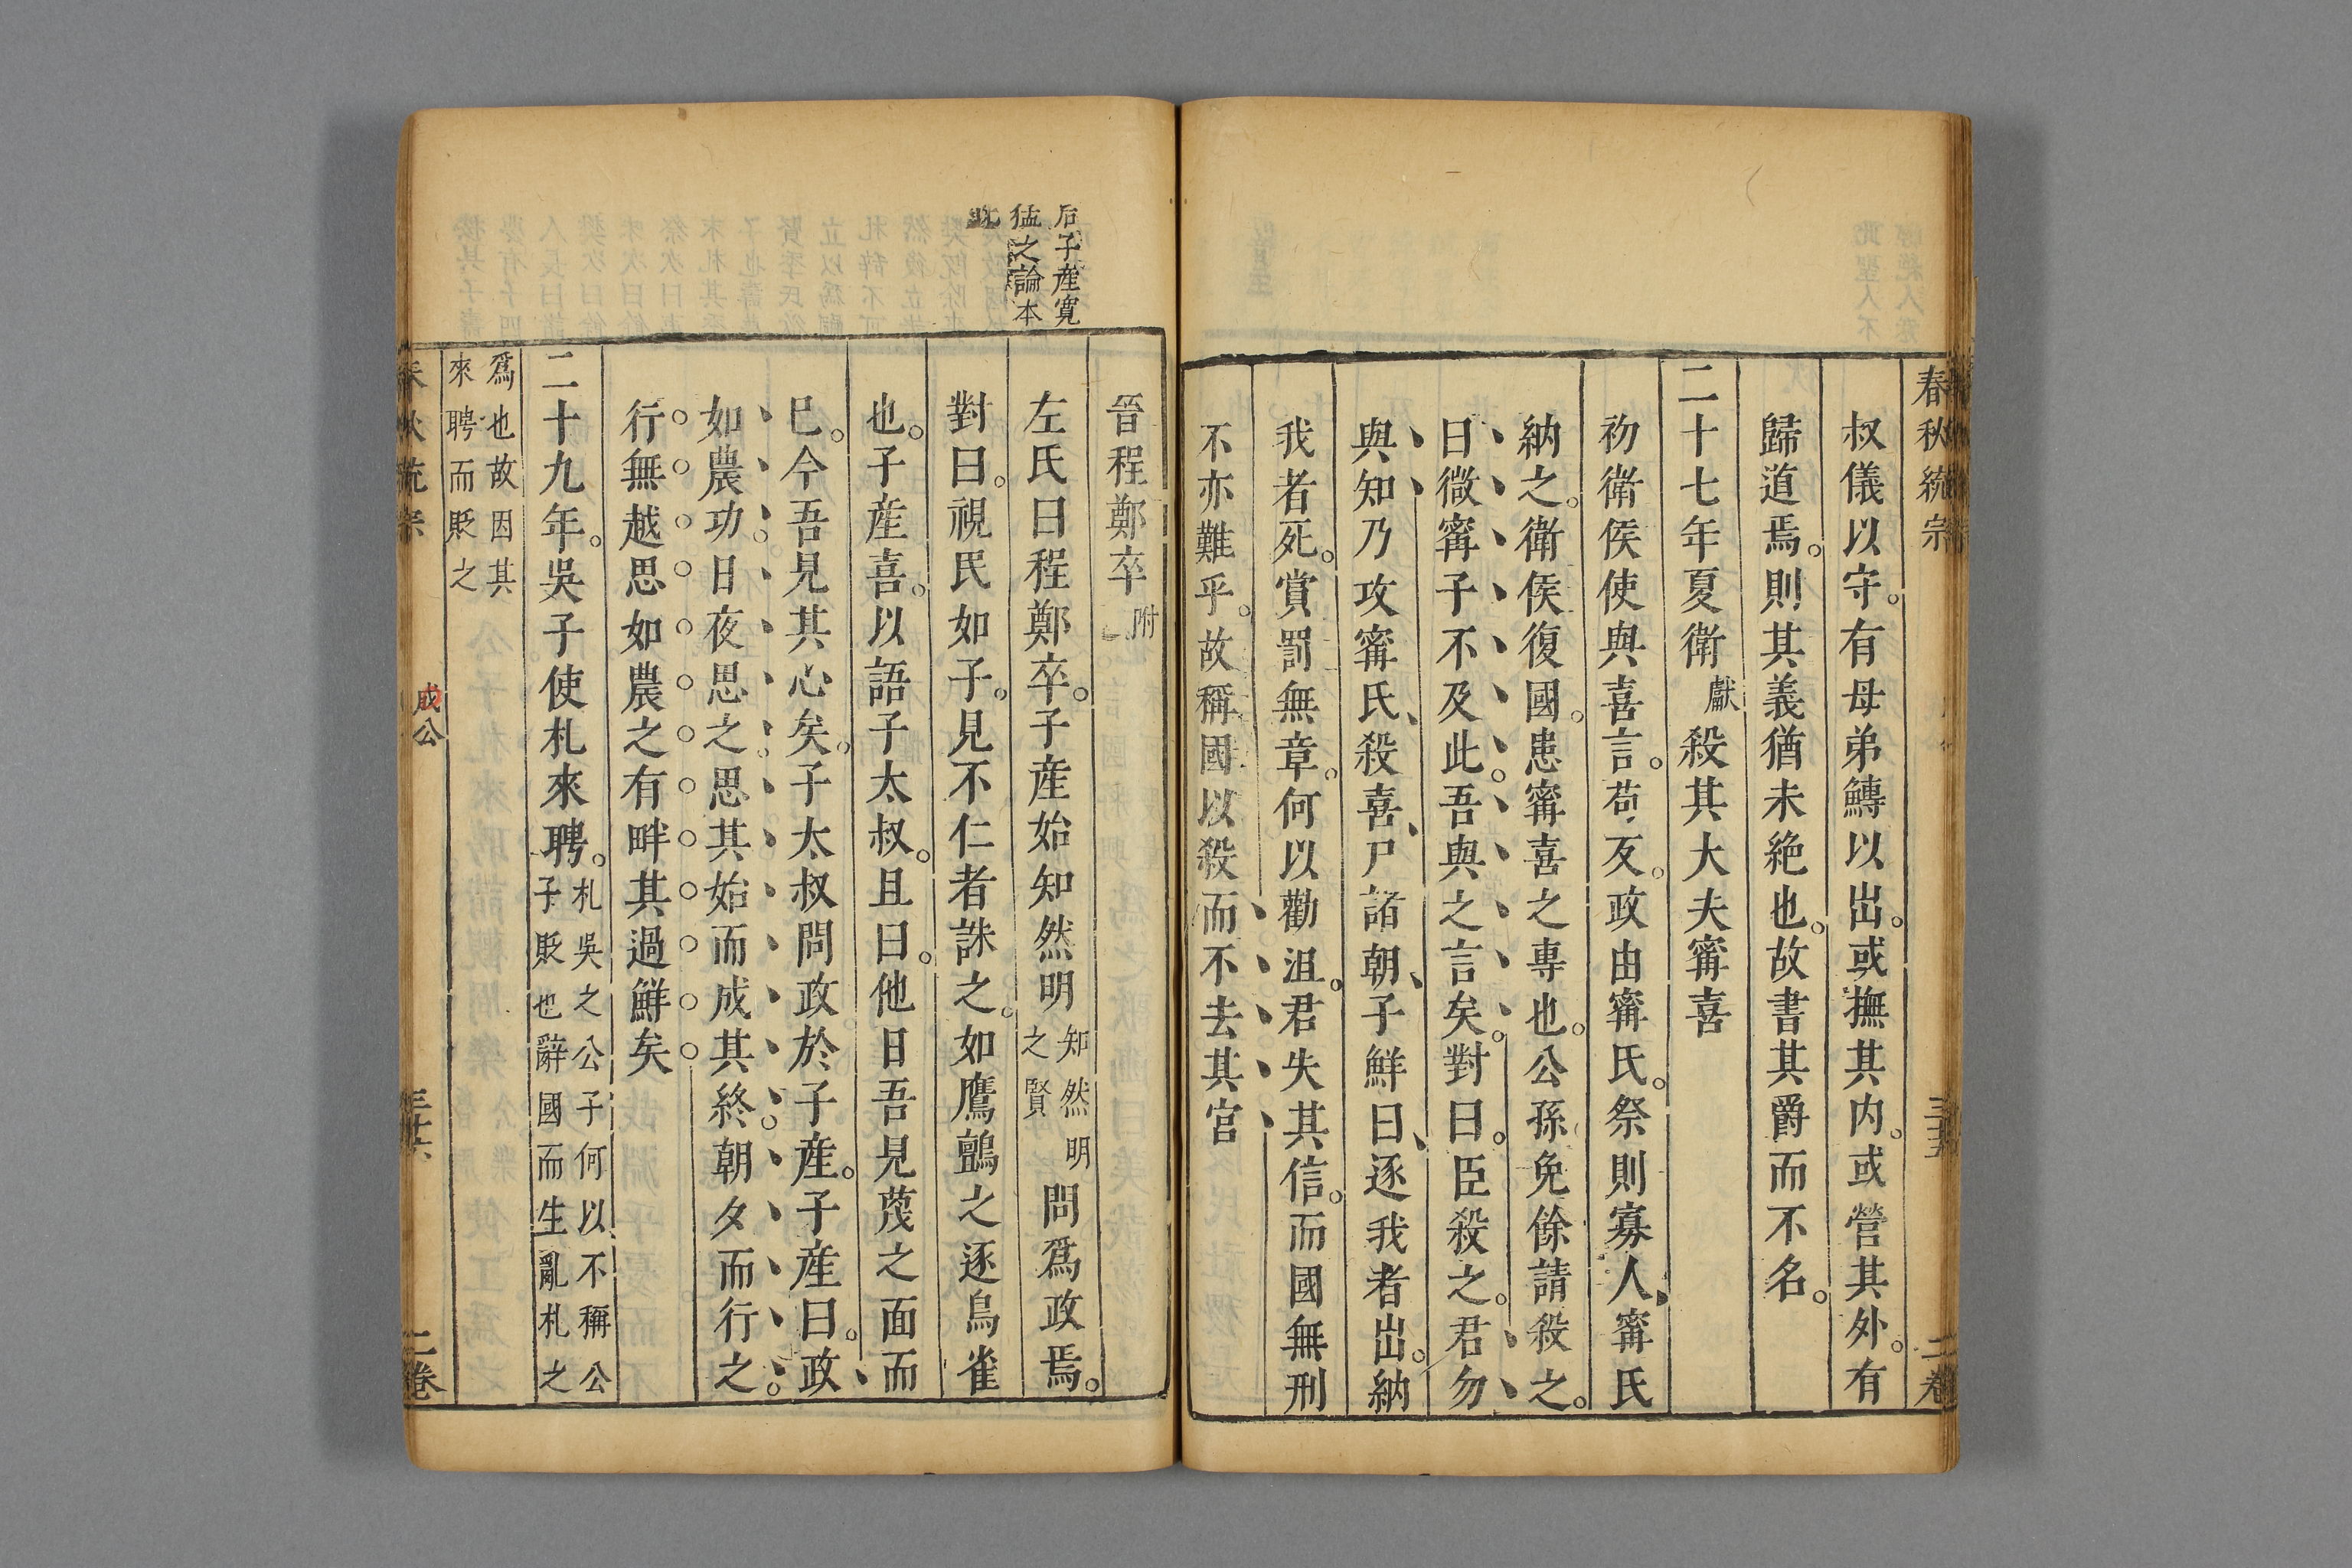 春秋統宗
三十五
二卷
叔儀以守。有母弟鱄以出。或撫其内。或營其外。有
歸道焉。則其義猶未絶也。故書其爵而不名。
二十七年夏衛獻殺其大夫甯喜
初衛侯使與喜言。苟反。政由甯氏。祭則寡人、甯氏
納之。衛侯復國。患甯喜之專也。公孫免餘請殺之。
曰微甯子不及此。吾與之言矣。對曰。臣殺之。君勿
與知乃攻甯氏、殺喜、尸諸朝、子鮮曰、逐我者出。納
我者死。賞罰無章。何以勸沮。君失其信。而國無刑
不亦難乎。故稱國以殺而不去其官
后子産寛
猛之論本
此
晉程鄭卒附
左氏曰程鄭卒。子産始知然明知然明之賢問爲政焉。
對曰。視民如子。見不仁者誅之。如鷹鸇之逐鳥雀
也。子産喜。以語子太叔。且曰。他日吾見蔑之面而
已。今吾見其心矣。子太叔問政於子産。子産曰。政
如農功。日夜思之。思其始而成其終。朝夕而行之。
行無越思如農之有畔其過鮮矣
二十九年。吳子使札來聘。札吳之公子何以不稱公子貶也辭國而生亂札之
爲也故因其來聘而貶之
春秋統宗
成公
三十六
二卷